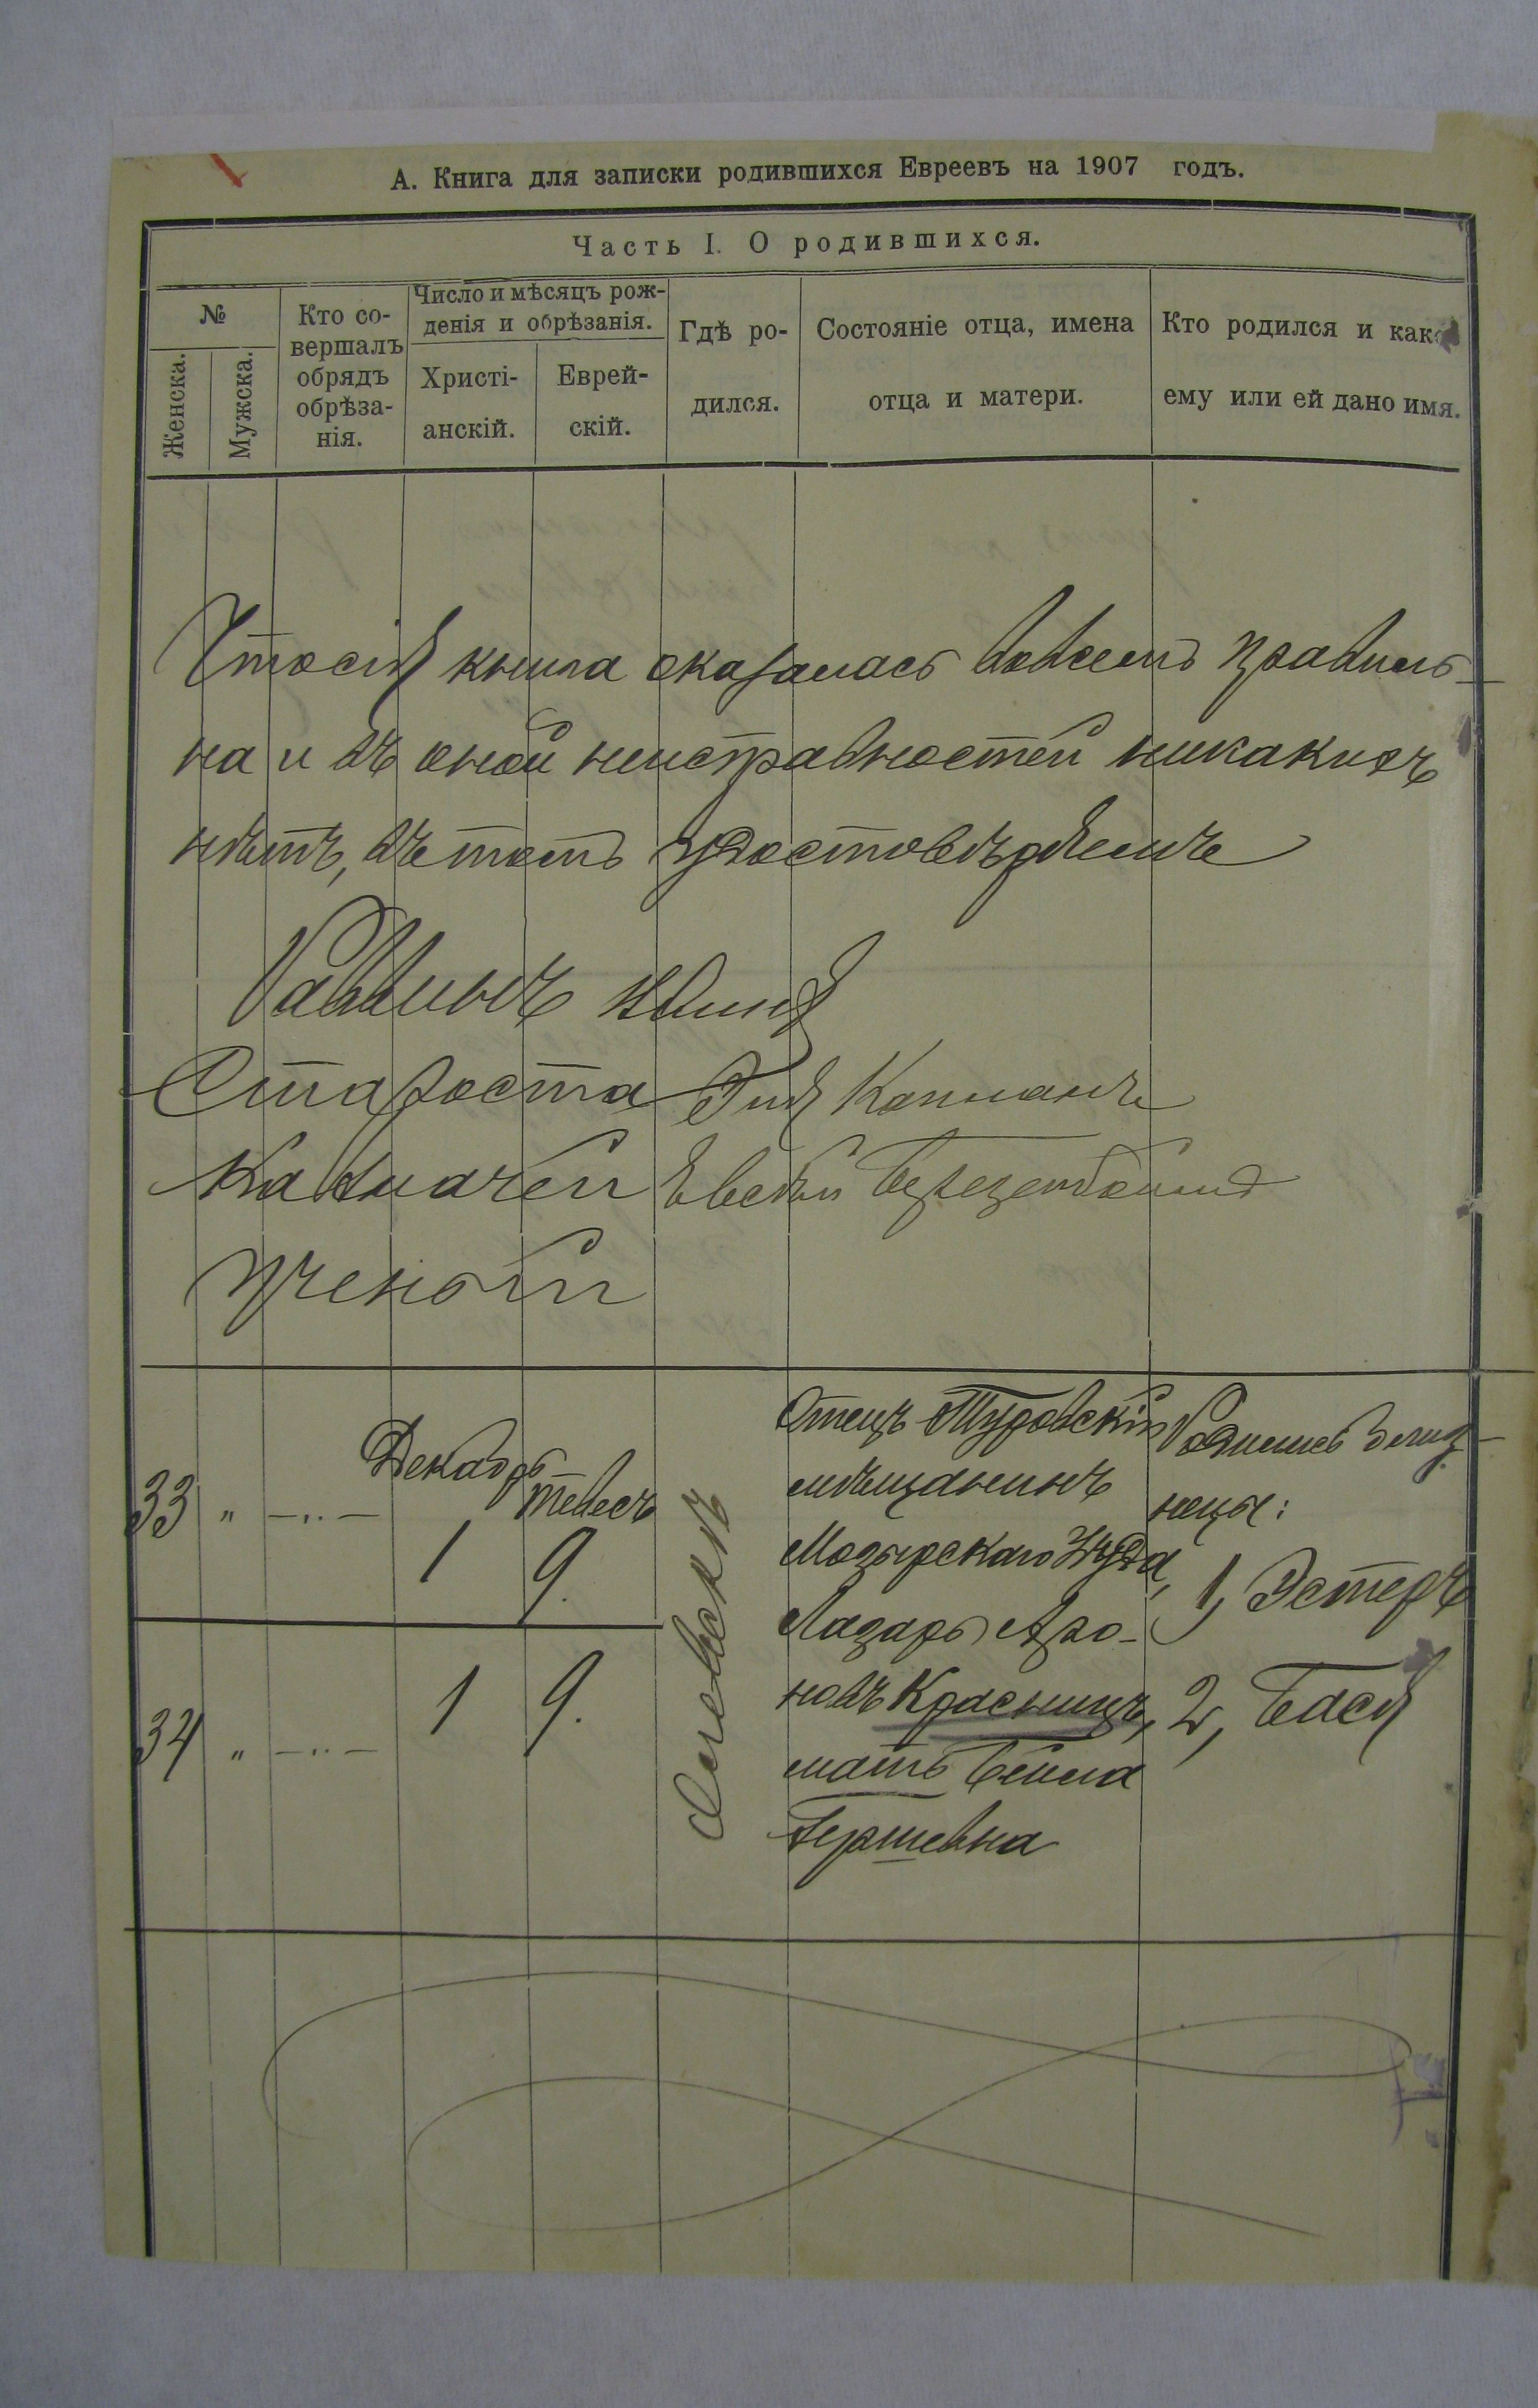 А. Книга для записки родившихся Евреевъ на 1907 годъ.
Часть I. О родившихся.
№
Женска.
Мужска.
Кто со-
вершалъ
обрядъ
обрѣза-
нія.
Число и мѣсяцъ рож-
денія и обрѣзанія.
Христі-
анскій.
Еврей-
скій.
Гдѣ ро-
дился.
Состояніе отца, имена
отца и матери.
Кто родился и како
ему или ей дано имя.
Что сія книга оказалась вовсемъ правиль-
на и въ оной неисправностей никакихъ
нѣтъ, въ томъ удостовѣряемъ
Раввинъ
Староста
Казначей
Ученый
33 " —..— Декабрь 1 Тевесъ 9.
34 " —..— 1 9.
Олевскъ
Отецъ Туровскій
мѣщанинъ
Мозырскаго Уѣзда,
Лазарь Аро-
новъ Красницъ,
мать Бейла
Гершевна
Родились близ-
нецы:
1, Эстеръ
2, Бася